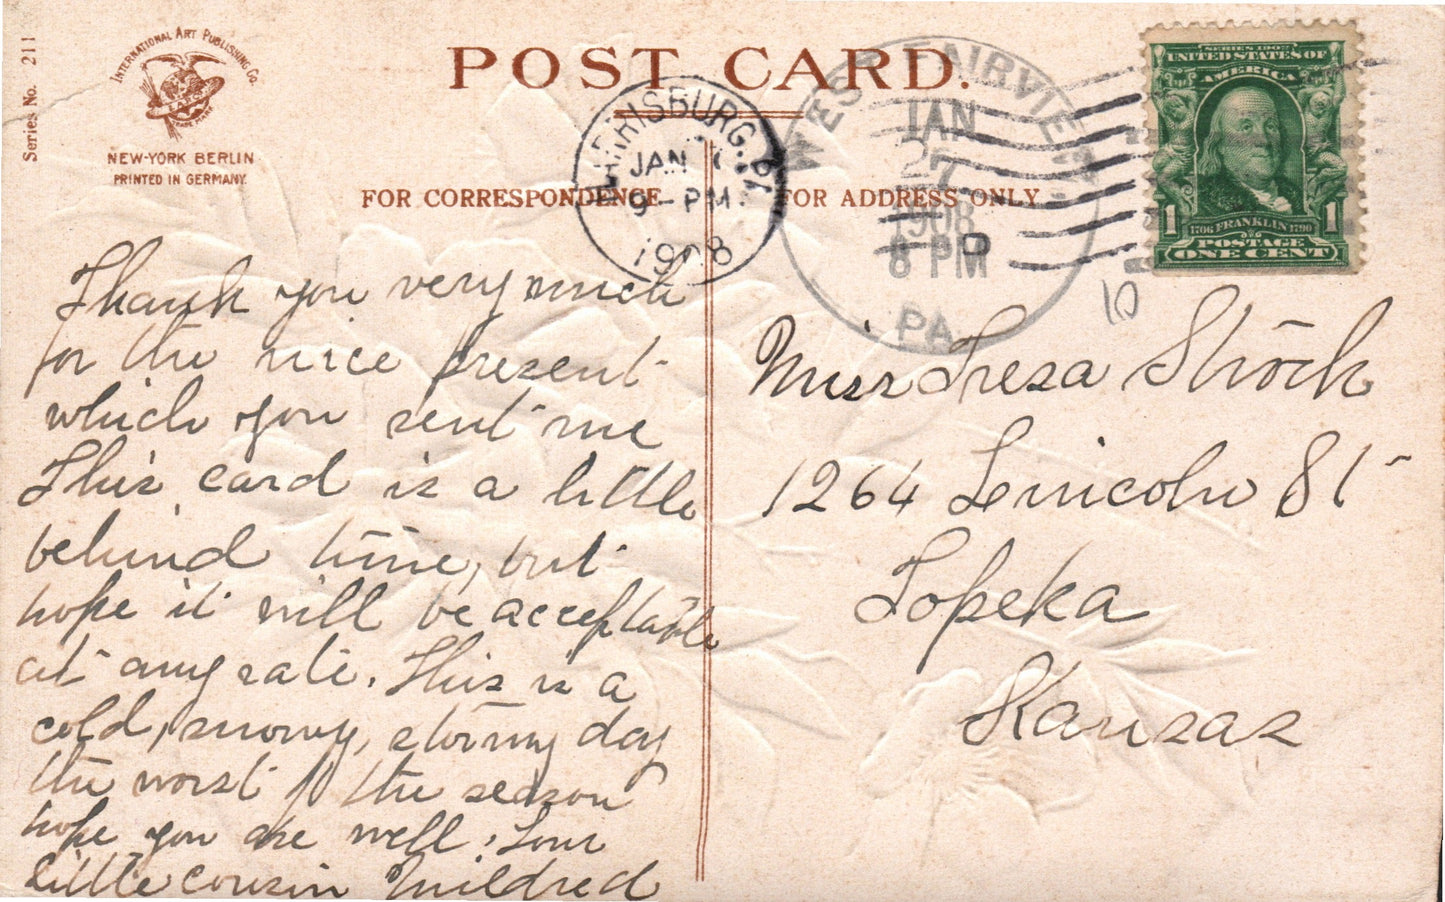 Series No. 211
INTERNATIONAL ART PUBLISHING CO.
TRADE MARK
NEW-YORK BERLIN
PRINTED IN GERMANY
POST CARD.
FOR CORRESPONDENCE
FOR ADDRESS ONLY
HARRISBURG, PA
JAN
9 - PM
1908
WEST FAIRVIEW
JAN
27
1908
8 PM
PA.
D
SERIES 1902
UNITED STATES OF
AMERICA
1706 FRANKLIN 1790
1 1
POSTAGE
ONE CENT
Thank you very much
for the nice present
which you sent me
This card is a little
behind time, but
hope it will be acceptable
at any rate. This is a
cold, snowy, stormy day
the worst of the season
hope you are well. Your
little cousin Mildred
Miss Tresa Shrock
1264 Lincoln St
Topeka
Kansas